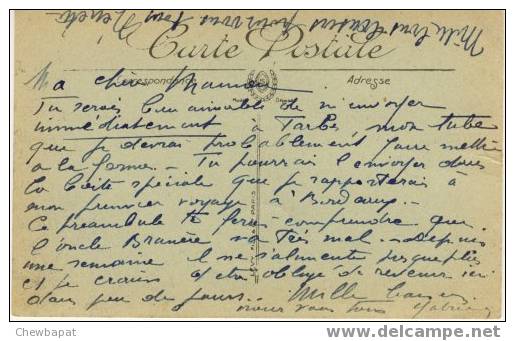 Mille bons baisers pour vous tous
Carte Postale
Correspondance
Adresse
Ma chère Maman
Tu serais bien aimable de m'envoyer
immédiatement à Tarbes, mon tube
que je devrai probablement faire mettre
à la forme. Tu pourrais l'envoyer dans
la boîte spéciale que je rapporterai à
mon premier voyage à Bordeaux.
Ce préambule te fera comprendre que
l'oncle va très mal. Depuis
une semaine il ne s'alimente presque plus
et je crains d'être obligé de revenir ici
dans peu de jours. Mille baisers
pour vous tous
Chewbapat
delcampe.net